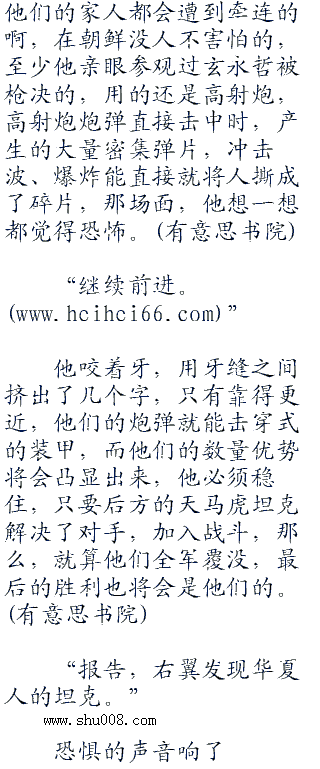 他们的家人都会遭到牵连的
啊，在朝鲜没人不害怕的，
至少他亲眼参观过玄永哲被
枪决的，用的还是高射炮，
高射炮炮弹直接击中时，产
生的大量密集弹片，冲击
波、爆炸能直接就将人撕成
了碎片，那场面，他想一想
都觉得恐怖。(有意思书院)
“继续前进。
(www.hcihci66.com)”
他咬着牙，用牙缝之间
挤出了几个字，只有靠得更
近，他们的炮弹就能击穿式
的装甲，而他们的数量优势
将会凸显出来，他必须稳
住，只要后方的天马虎坦克
解决了对手，加入战斗，那
么，就算他们全军覆没，最
后的胜利也将会是他们的。
(有意思书院)
“报告，右翼发现华夏
人的坦克。”
www.shu008.com
恐惧的声音响了